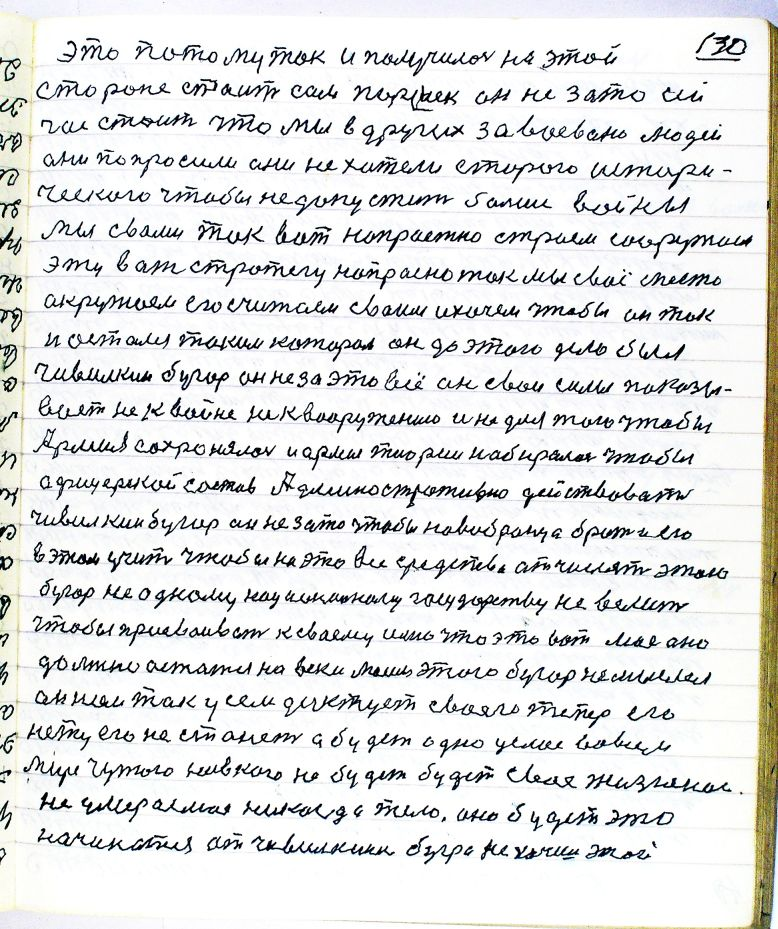 130
это потому так и получилос на этой
стороне стаит сам парщек он не зато сей
час стаит что мы в других завоевано людей
ани попросили ани не хатели старого истори-
ческого чтобы недопустит более войны
мы свами так вот напрастно строем сооружаем
эту ваш стротегу напрасно так мы своё место
акружаем его считаем сваим ихочем чтобы он так
и остался таким каторам он до этого дело был
чивилкин бугор он незаэто всё он сваи силы показы-
вает не к войне не к вооружению и не для того чтобы
Армия сохронялас и армия теории набиралас чтобы
афицерской состав Административно действовать
чивилкин бугор он не зато чтобы новобранца брат и его
в этом учит чтобы на это все средства отчислят этого
бугор не одному национальному государству не велит
чтобы присваиват к сваему имю что это вот мое ано
должно астатся на веки моим этого бугор немыслел
он нам так усем диктует своего тепер его
нету его не станет а будет одно целое вовсем
мире Чужого неякого не будет будет свае жизненое
не умераемая никогда тело. ано будет это
начинатся от чивилкина бугра не хочим этой